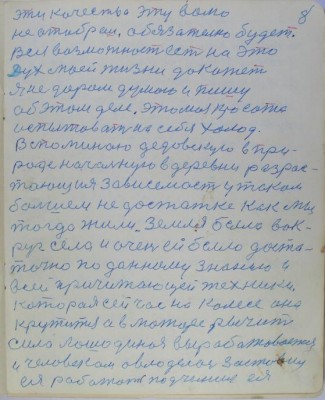 эти качества эту волю 8
не отобрал. обязательно будет.
Вся возможность ест на это
Дух моей жизни докажет
Я не даром думаю и пишу
об этом деле. Это моя красота
испытовать на себя холод.
Вспоминаю дедовскую в при-
роде начальную в деревни разрас-
тающия Зависемость у таком
большем не достатке как мы
тогда жили. Земля была вок-
руг села и очен ей было доста-
точно по данному знанию и
ней причитающей техники
которая сейчас на колесе она
крутится а в моторе рычит
сила лошадиная вырабатовается
и человеком овлоделая заставил
ея работат подчинил ея